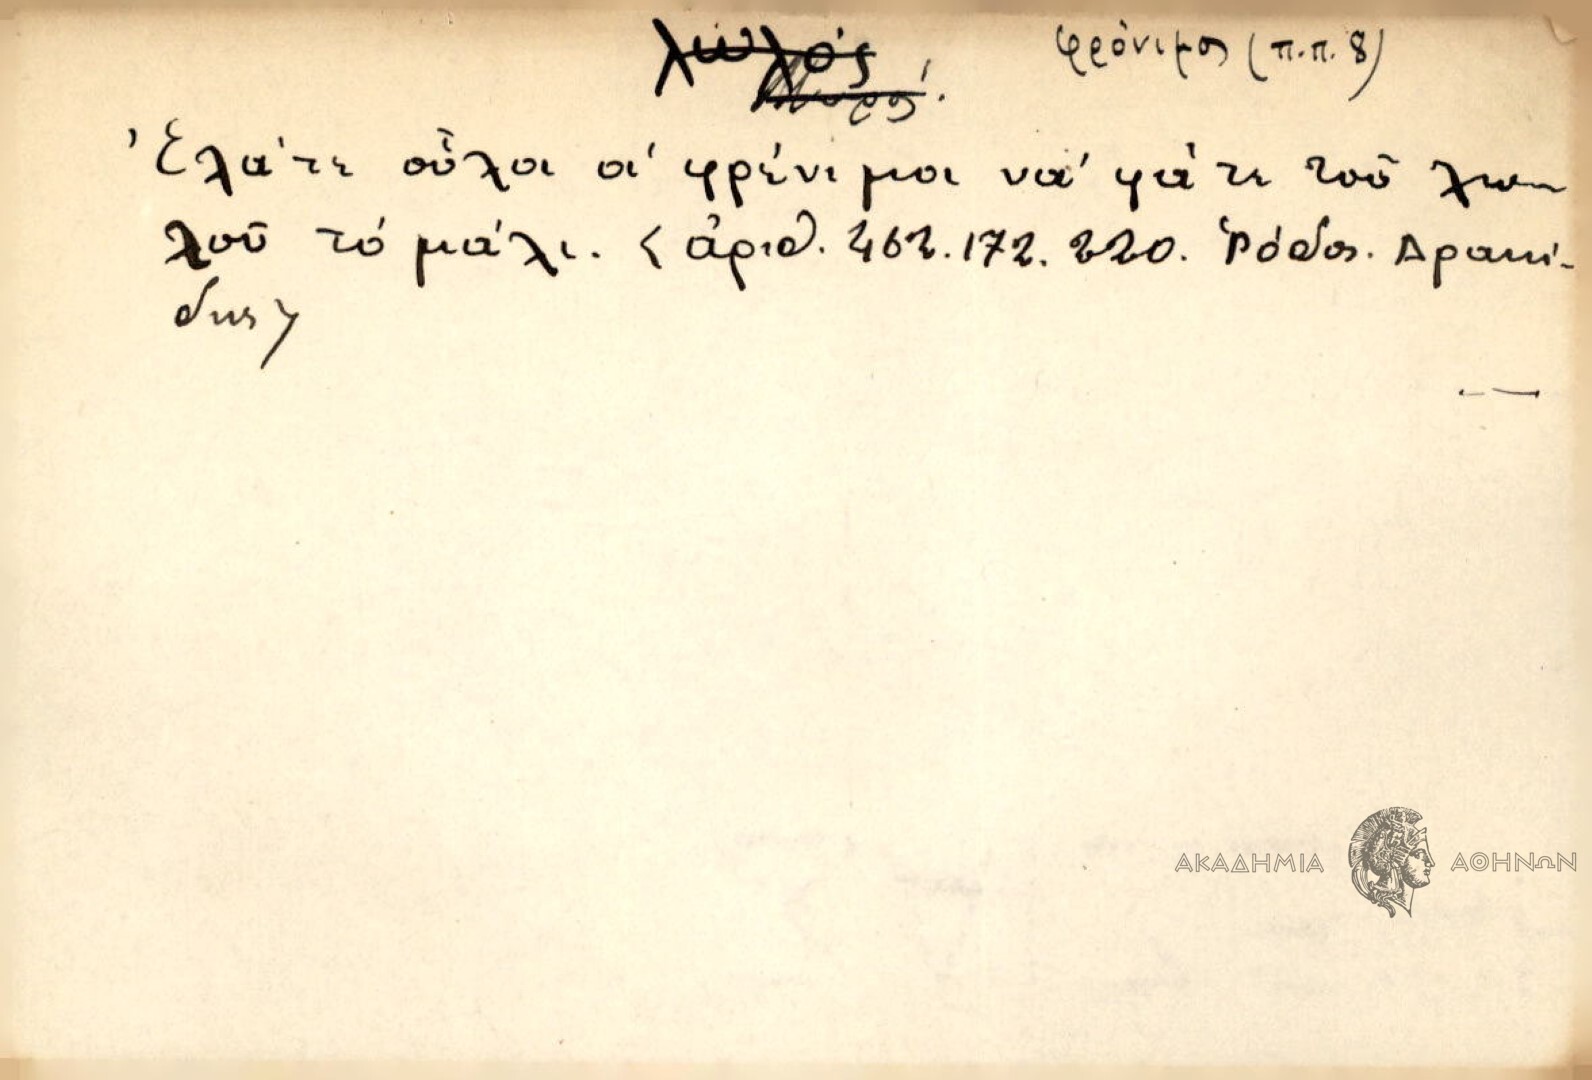 λωλός φρόνιμος (π.π. 8)
Ἐλάτε οὗλοι οἱ φρένιμοι νά φάτε τοῦ λω-
λοῦ τό μάλι. < ἀριθ. 462.172.220. Ῥόδος. Δρακί-
δης >
ΑΚΑΔΗΜΙΑ ΑΘΗΝΩΝ